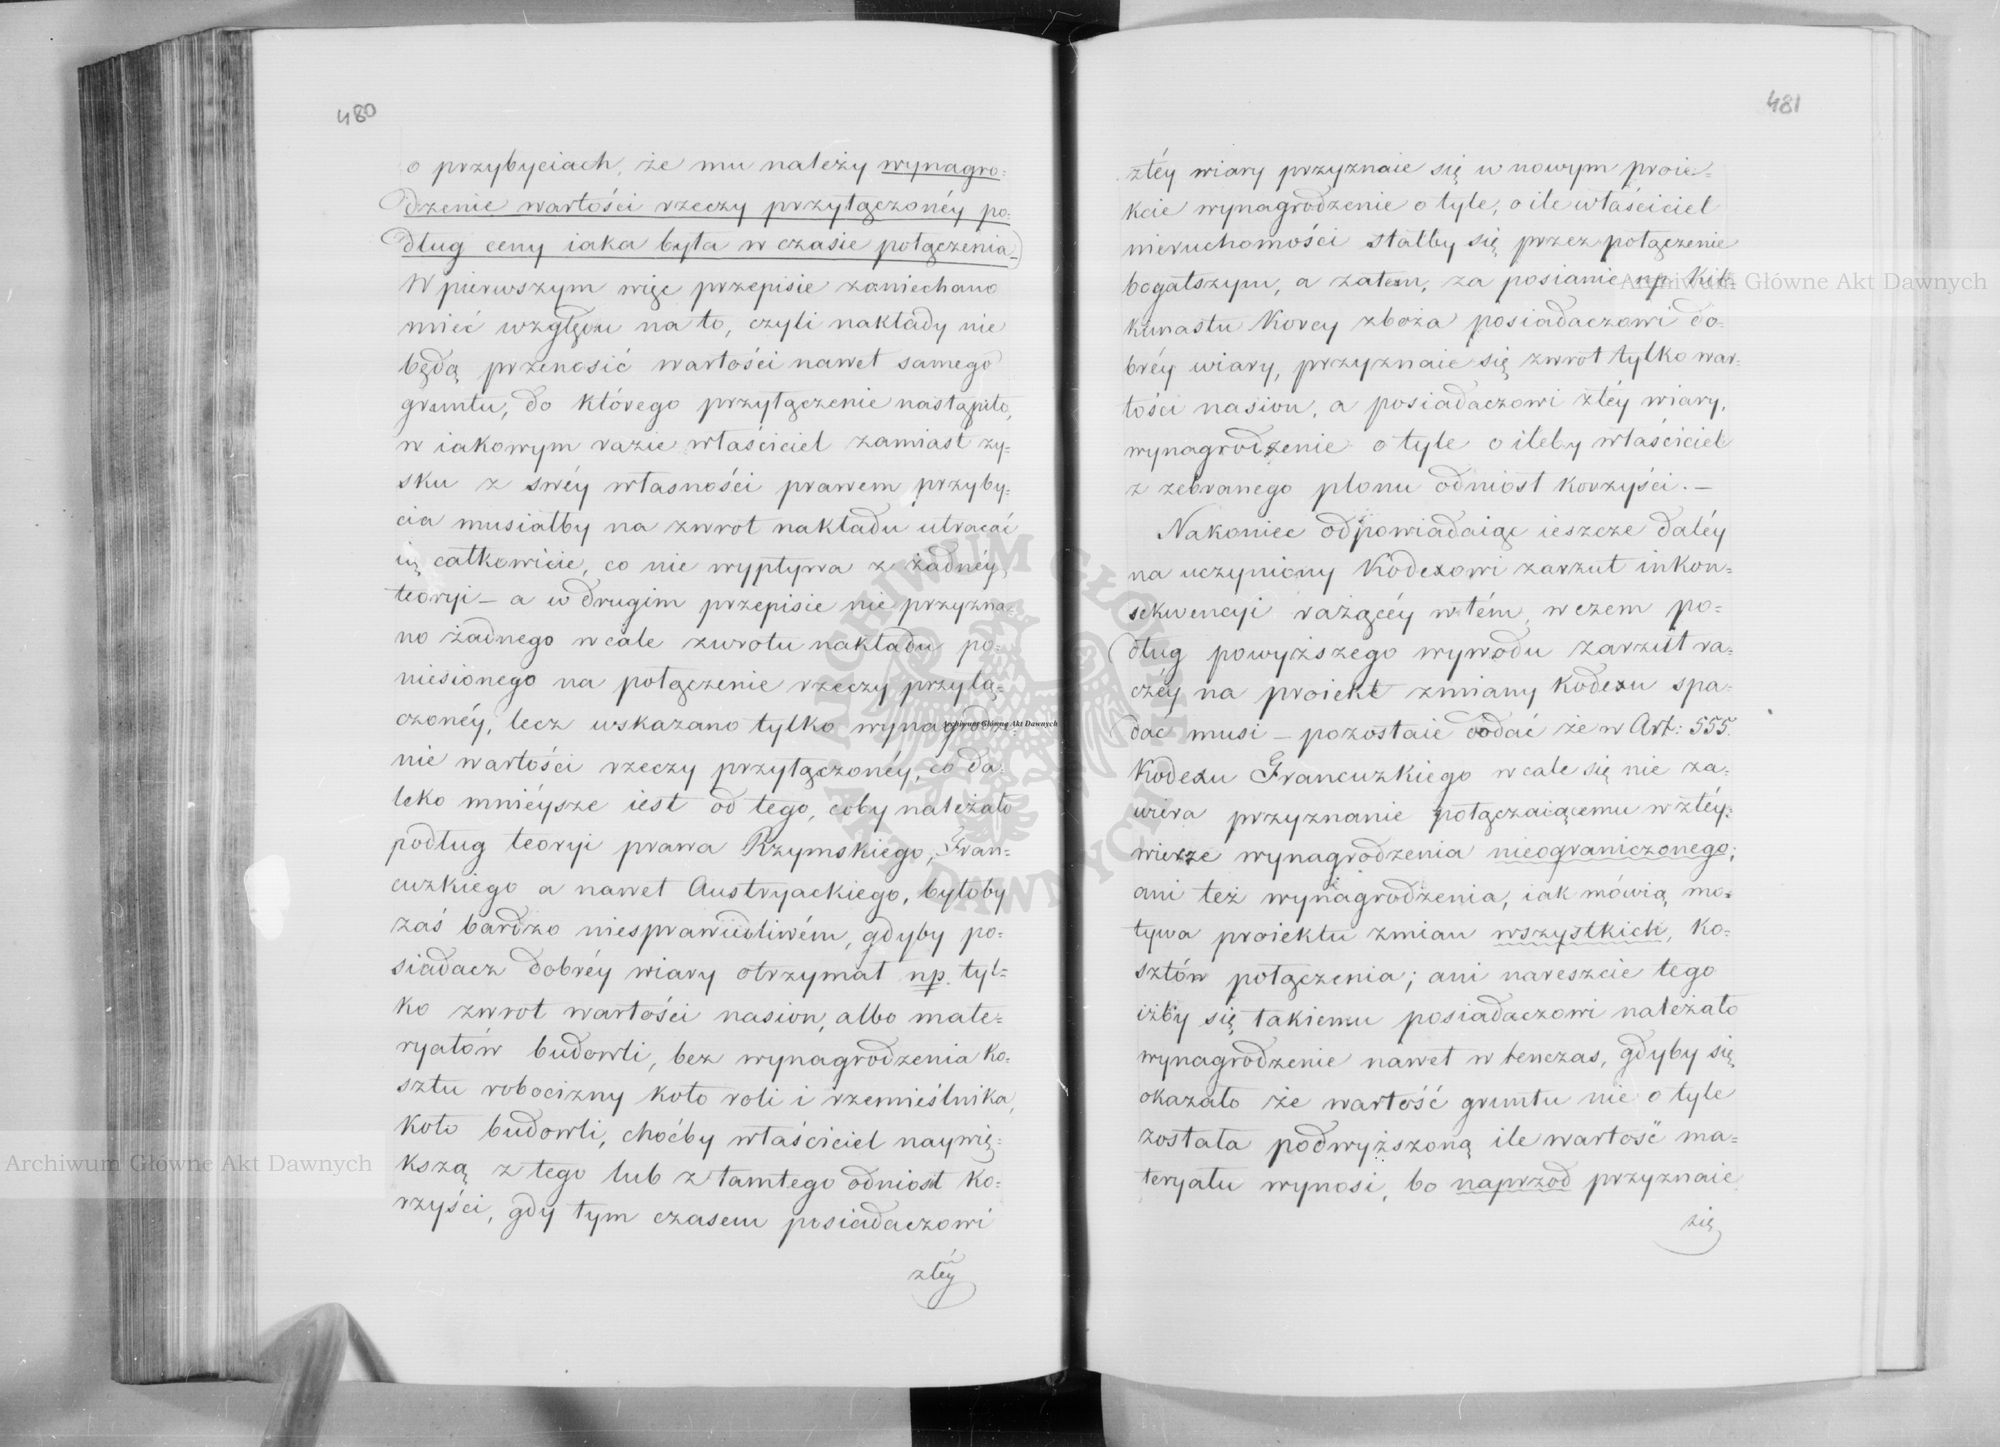 480
o przybyciach, że mu należy wynagro-
dzenie wartości rzeczy przyłączonéy po-
dług ceny iaka była w czasie połączenia
W pierwszym więc przepisie zaniechano
mieć wzgłędu na to, czyli nakłady nie
będą przenosić wartości nawet samego
gruntu, do którego przyłączenie nastąpiło,
w iakowym razie właściciel zamiast zy-
sku z swéy własności prawem przyby-
cia musiałby na zwrot nakładu utracać
ią całkowicie, co nie wypływa z żadnéy
teoryi – a w drugim przepisie nie przyzna-
no żadnego wcale zwrotu nakładu po-
niesionego na połączenie rzeczy przyłą-
czonéy, lecz wskazano tylko wynagrodze-
nie wartości rzeczy przyłączonéy, co da-
leko mnieysze iest od tego, coby należało
podług teoryi prawa Rzymskiego, Fran-
cuzkiego a nawet Austryackiego, byłoby
zaś bardzo niesprawiedliwém, gdyby po-
siadacz dobréy wiary otrzymał np. tyl-
ko zwrot wartości nasion, albo mate-
ryałów budowli, bez wynagrodzenia ko-
sztu robocizny koło roli i rzemieślnika,
koło budowli, choćby właściciel naywię-
kszą z tego lub z tamtego odniosł ko-
rzyści, gdy tym czasem posiadaczowi
złéy
481
złéy wiary przyznaie się w nowym proie-
kcie wynagrodzenie o tyle, o ile właściciel
nieruchomości stałby się przez połączenie
bogatszym, a zatem, za posianie np. kil-
kunastu korcy zboża posiadaczowi do-
bréy wiary, przyznaie się zwrot tylko war-
tości nasion, a posiadaczowi złéy wiary,
wynagrodzenie o tyle o ileby właściciel
z zebranego plonu odniosł korzyści. –
Nakoniec odpowiadaiąc ieszcze daléy
na uczyniony Kodexowi zarzut inkon-
sekwencyi rażącéy w tém, w czem po-
dług powyższego wywodu zarzut ra-
czéy na proiekt zmiany Kodexu spa-
dać musi – pozostaie dodać że w Art: 555.
Kodexu Francuzkiego wcale się nie za-
wiera przyznanie połączaiącemu w złéy
wierze wynagrodzenia nieograniczonego;
ani też wynagrodzenia, iak mówią mo-
tywa proiektu zmian wszystkich, ko-
sztów połączenia; ani nareszcie tego
iżby się takiemu posiadaczowi należało
wynagrodzenie nawet w tenczas, gdyby się
okazało że wartość gruntu nie o tyle
została podwyższoną ile wartość ma-
teryału wynosi, bo naprzod przyznaie
się
Archiwum Główne Akt Dawnych
Archiwum Główne Akt Dawnych
Archiwum Główne Akt Dawnych
ARCHIWUM GŁÓWNE AKT DAWNYCH